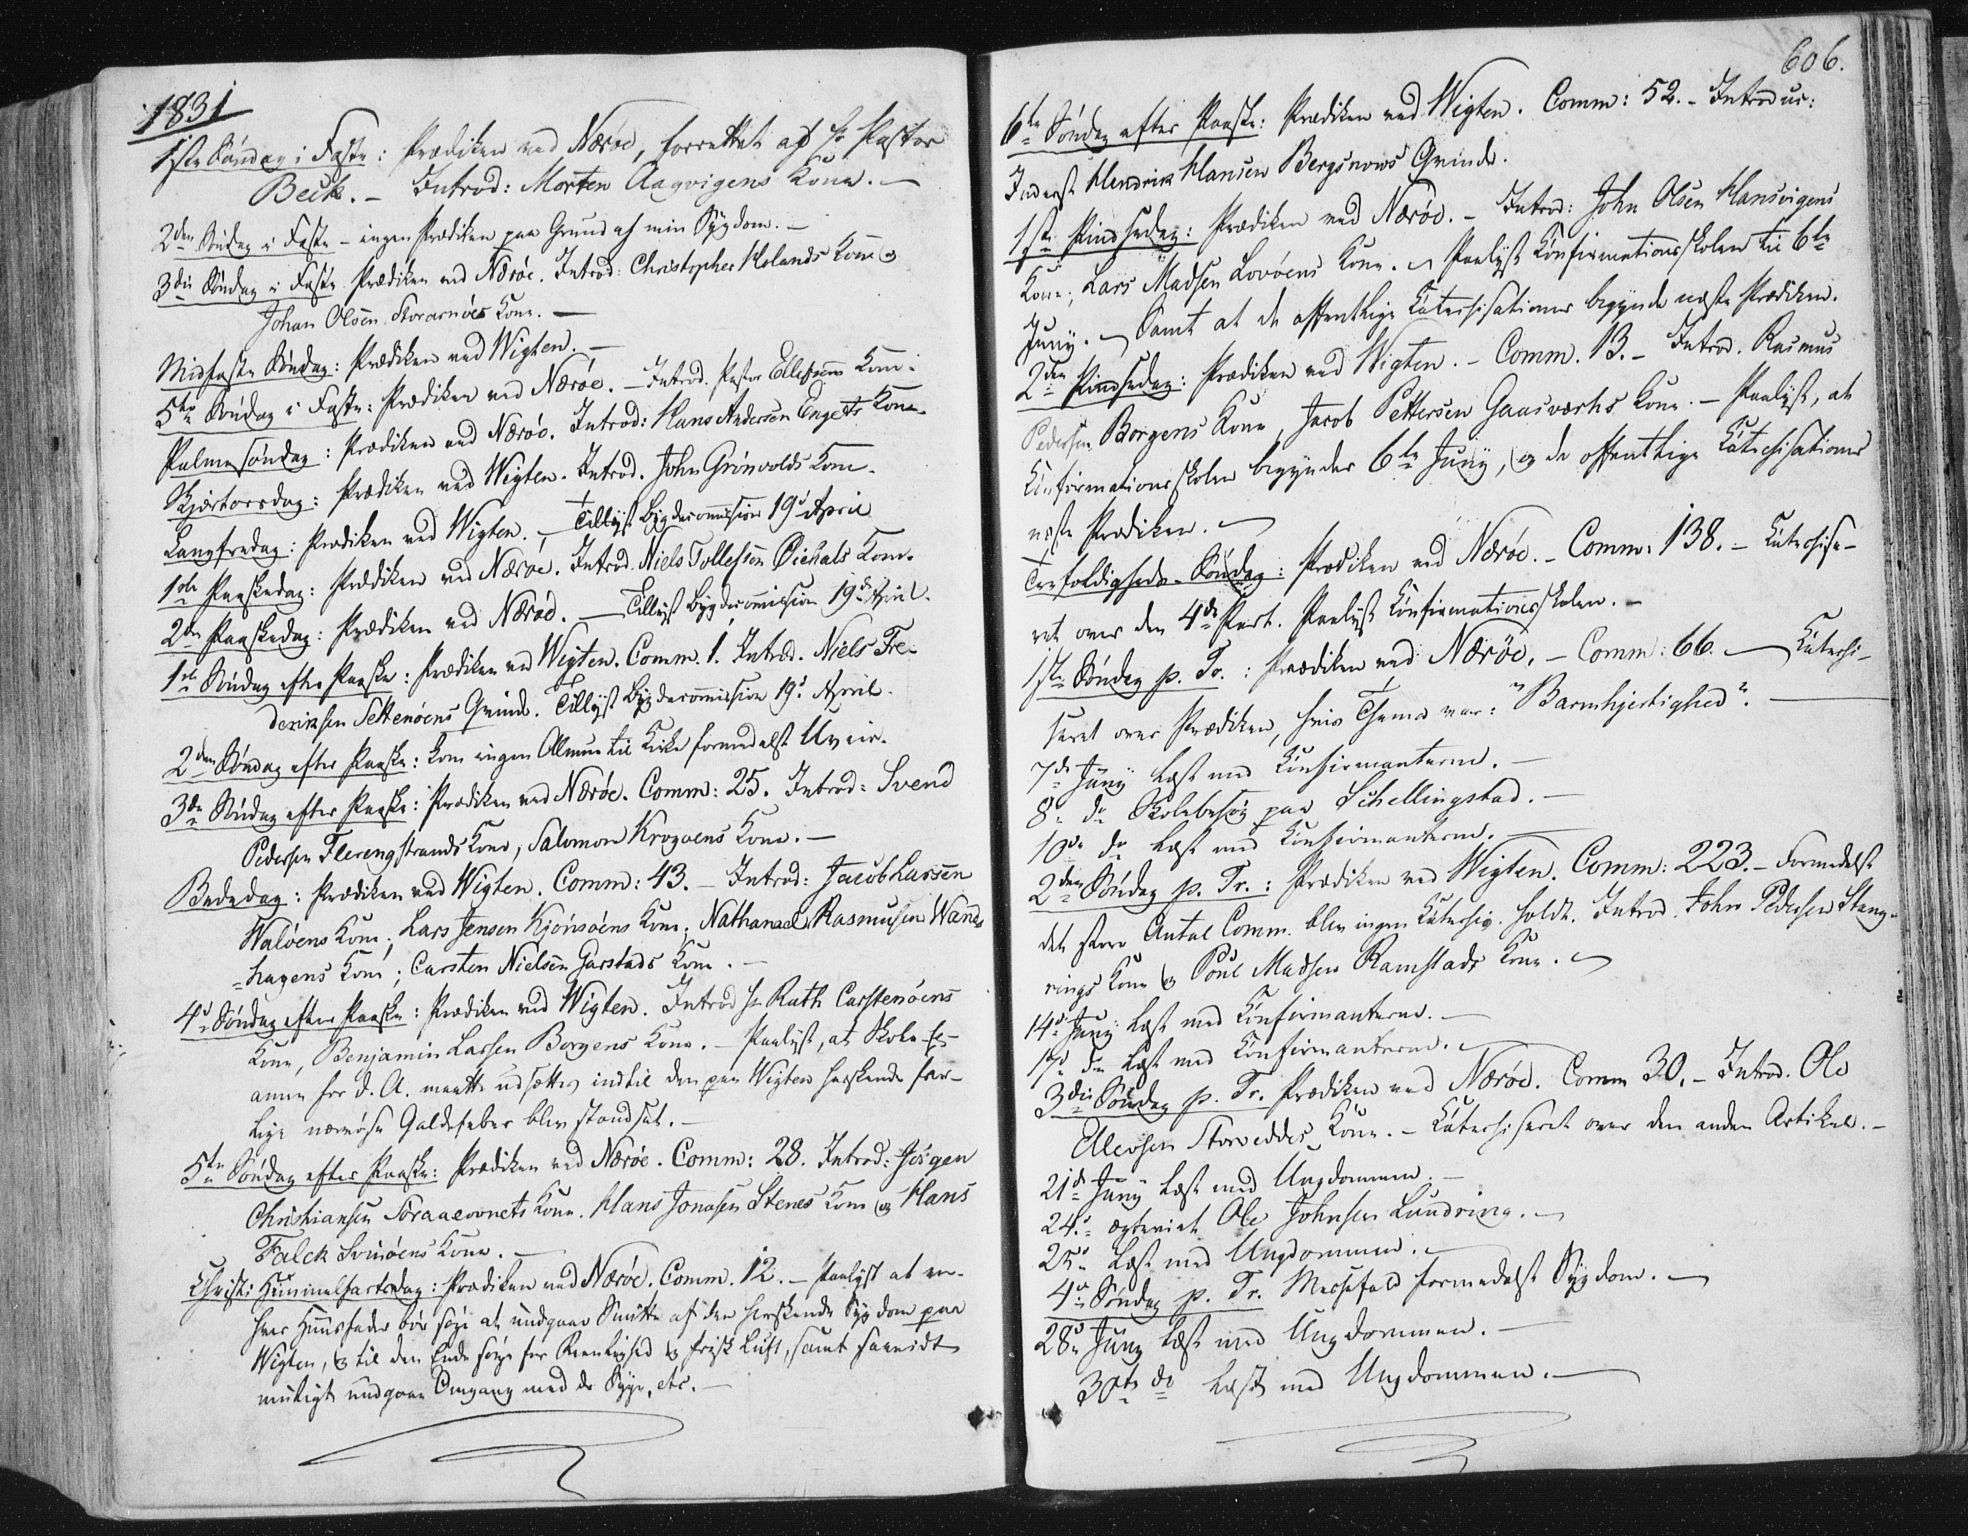 1831
1ste Søndag i Faste: Prædiken ved Nærøe, forrettet af Hr Pastor
Beck. – Introd: Morten Aagvigens Kone. –
2den Søndag i Faste – ingen Prædiken paa Grund af min Sygdom. –
3die Søndag i Faste Prædiken ved Nærøe. Introd: Christopher Holands Kone og
Johan Olsen Storarnøes Kone. –
Midfaste Søndag: Prædiken ved Wigten. –
5te Søndag i Faste: Prædiken ved Nærøe. – Introd. Peter Ellefsens Kone.
Palmesøndag: Prædiken ved Nærøe. Introd: Hans Andersen Engets Kone.
Skjærtorsdag: Prædiken ved Wigten. Introd. John Grönvolds Kone.
Langfredag: Prædiken ved Wigten. – Tillyst Bygdecommission 19d April
1ste Paaskedag: Prædiken ved Nærøe. Introd. Niels Tollefsen Kone.
2den Paaskedag: Prædiken ved Nærøe. – Tillyst Bygdecommission 19d April.
1ste Søndag efter Paaske: Prædiken ved Wigten. Comm. 1. Introd. Niels Fre-
deriksen Settenöens Qvinde. Tillyst Bygdecommission 19d April.
2den Søndag efter Paaske: kom ingen Almue til Kirke formedelst Uveir.
3die Søndag efter Paaske: Prædiken ved Nærøe. Comm: 25. Introd: Svend
Pedersen Flerengstrands Kone, Salomon Krogöens Kone. –
Bededag: Prædiken ved Wigten. Comm: 43. – Introd: Jacob Larsen
Walöens Kone; Lars Jensen Kjönsöens Kone; Nathanael Rasmusen Wand-
-hagens Kone; Carsten Nielsen Garstads Kone. –
4d Søndag efter Paaske: Prædiken ved Wigten. Introd Hr Rath Carstenöens
Kone, Benjamin Larsen Borgens Kone. – Paalyst, at Skole-Ex-
amen for d. A. maatte udsættes indtil den paa Wigten herskende far-
lige nervøse Galdefeber blev standset. –
5te Søndag efter Paaske: Prædiken ved Nærøe. Comm: 28. Introd: Jörgen
Christiansen Kone. Hans Jonasen Stenes Kone og Hans
Falck Svinöens Kone. –
Christi Himmelfartsdag: Prædiken ved Nærøe. Comm. 12. – Paalyst at en-
hver Huusfader bör söge at undgaae Smitte af den herskende Sygdom paa
Wigten, og til den Ende sörge for Reenlighed og frisk Luft, samt saavidt
muligt undgaae Omgang med de Syge, etc. –
606.
6te Søndag efter Paaske: Prædiken ved Wigten. Comm: 52. – Introduc:
Inderst Hendrik Hansen Bergsnows Qvinde.
1ste Pindsedag: Prædiken ved Nærøe. – Introd: John Olsen Hansvigens
Kone, Lars Madsen Lovöens Kone. – Paalyst Confirmationsskolen til 6te
Juny. – Samt at de offentlige Catechisationer begynde næste Prædiken.
2den Pindsedag: Prædiken ved Wigten. – Comm. 13. – Introd. Rasmus
Pedersen Borgens Kone, Jacob Pettersen Gaasværks Kone. – Paalyst, at
Confirmationsskolen begynder 6te Juny, og de offentlige Catechisationer
næste Prædiken. –
Trefoldigheds-Søndag: Prædiken ved Nærøe. – Comm: 138. – Catechise-
ret over den 4de Part. Paalyst Confirmationsskolen. –
1ste Søndag p. Tr.: Prædiken ved Nærøe. – Comm: 66. – Catechi-
seret over Prædiken, hvis Thema var: "Barmhjertighed". –
7de Juny Læst med Confirmanterne. –
8de do Skolebesøg paa Schellingstad. –
10de do Læst med Confirmanterne. –
2den Søndag p. Tr.: Prædiken ved Wigten. Comm: 223. – Formedelst
det store Antal Comm. blev ingen Catechis. holdt. Introd. John Pedersen Stang-
rings Kone og Poul Madsen Ramstads Kone. –
14de Juny Læst med Confirmanterne. –
17d do Læst med Confirmanterne. –
3die Søndag p. Tr. Prædiken ved Nærøe. Comm 30. – Introd. Ole
Ellevsen Storveddes Kone. – Catechiseret over den anden Artikel. –
21d Juny Læst med Ungdommen. –
24d ægteviet Ole Johnsen Lundring. –
25d Læst med Ungdommen. –
4de Søndag p. Tr. Messefald formedelst Sygdom. –
28d Juny Læst med Ungdommen. –
30te do Læst med Ungdommen. –